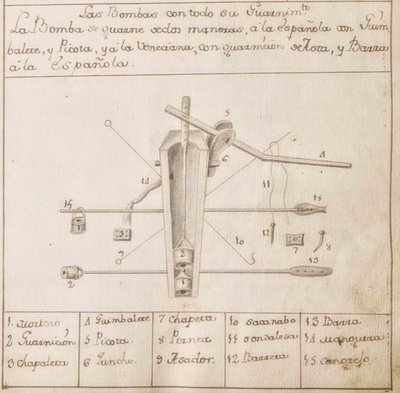 Las Bombas con todo su Guarnimto
La Bomba se guarne de dos maneras, à la española con Guim
balete, y Picota, y à la Veneciana, con guarnicion de Asta, y Barra
à la Española.
5
4
6
14
11
15
15
1
3
12
7
8
9
10
2
2
1
13
1 Mortero
2 Guarnicion
3 chapaleta
4 Guimbalete
5 Picota
6 Guncho
7 chapeta
8 Pernete
9 Asador
10 sacanabo
11 sondalesa
12 Barrera
13 Barra
14 Manguera
15 cangrejo